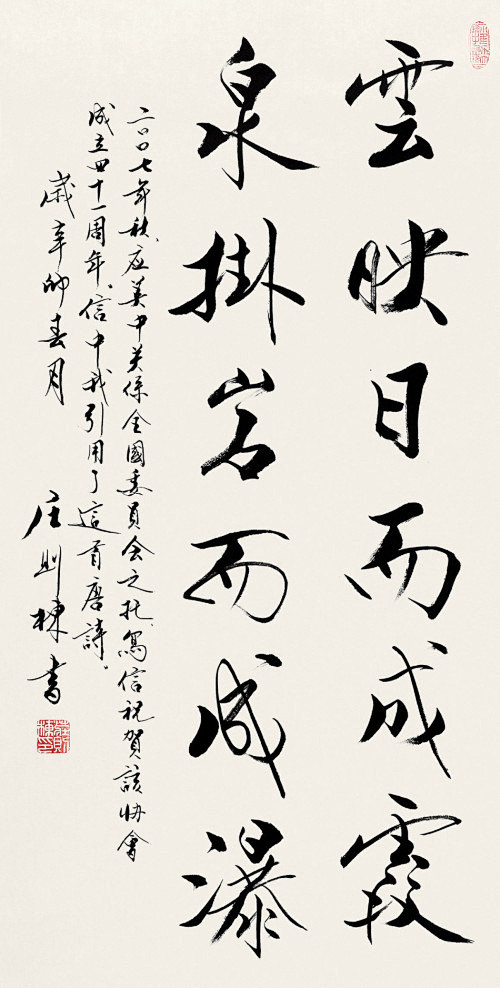 雲映日而成霞
泉掛岩而成瀑
二〇〇七年秋、应美中关係全國委員会之托、寫信祝賀該协會
成立四十一周年、信中我引用了這首唐詩。
歲辛卯春月
庄则棟书